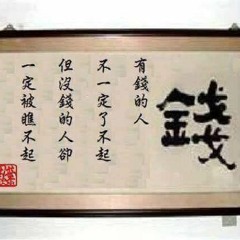 錢
有錢的人
不一定了不起
但沒錢的人卻
一定被瞧不起